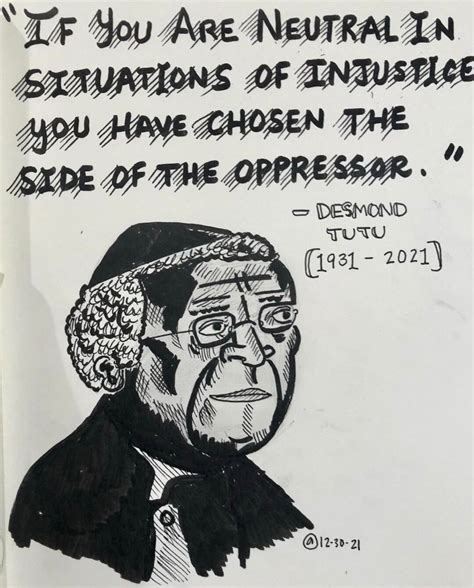 "IF YOU ARE NEUTRAL IN
SITUATIONS OF INJUSTICE
YOU HAVE CHOSEN THE
SIDE OF THE OPPRESSOR."
- DESMOND
TUTU
(1931 - 2021)
@12-30-21